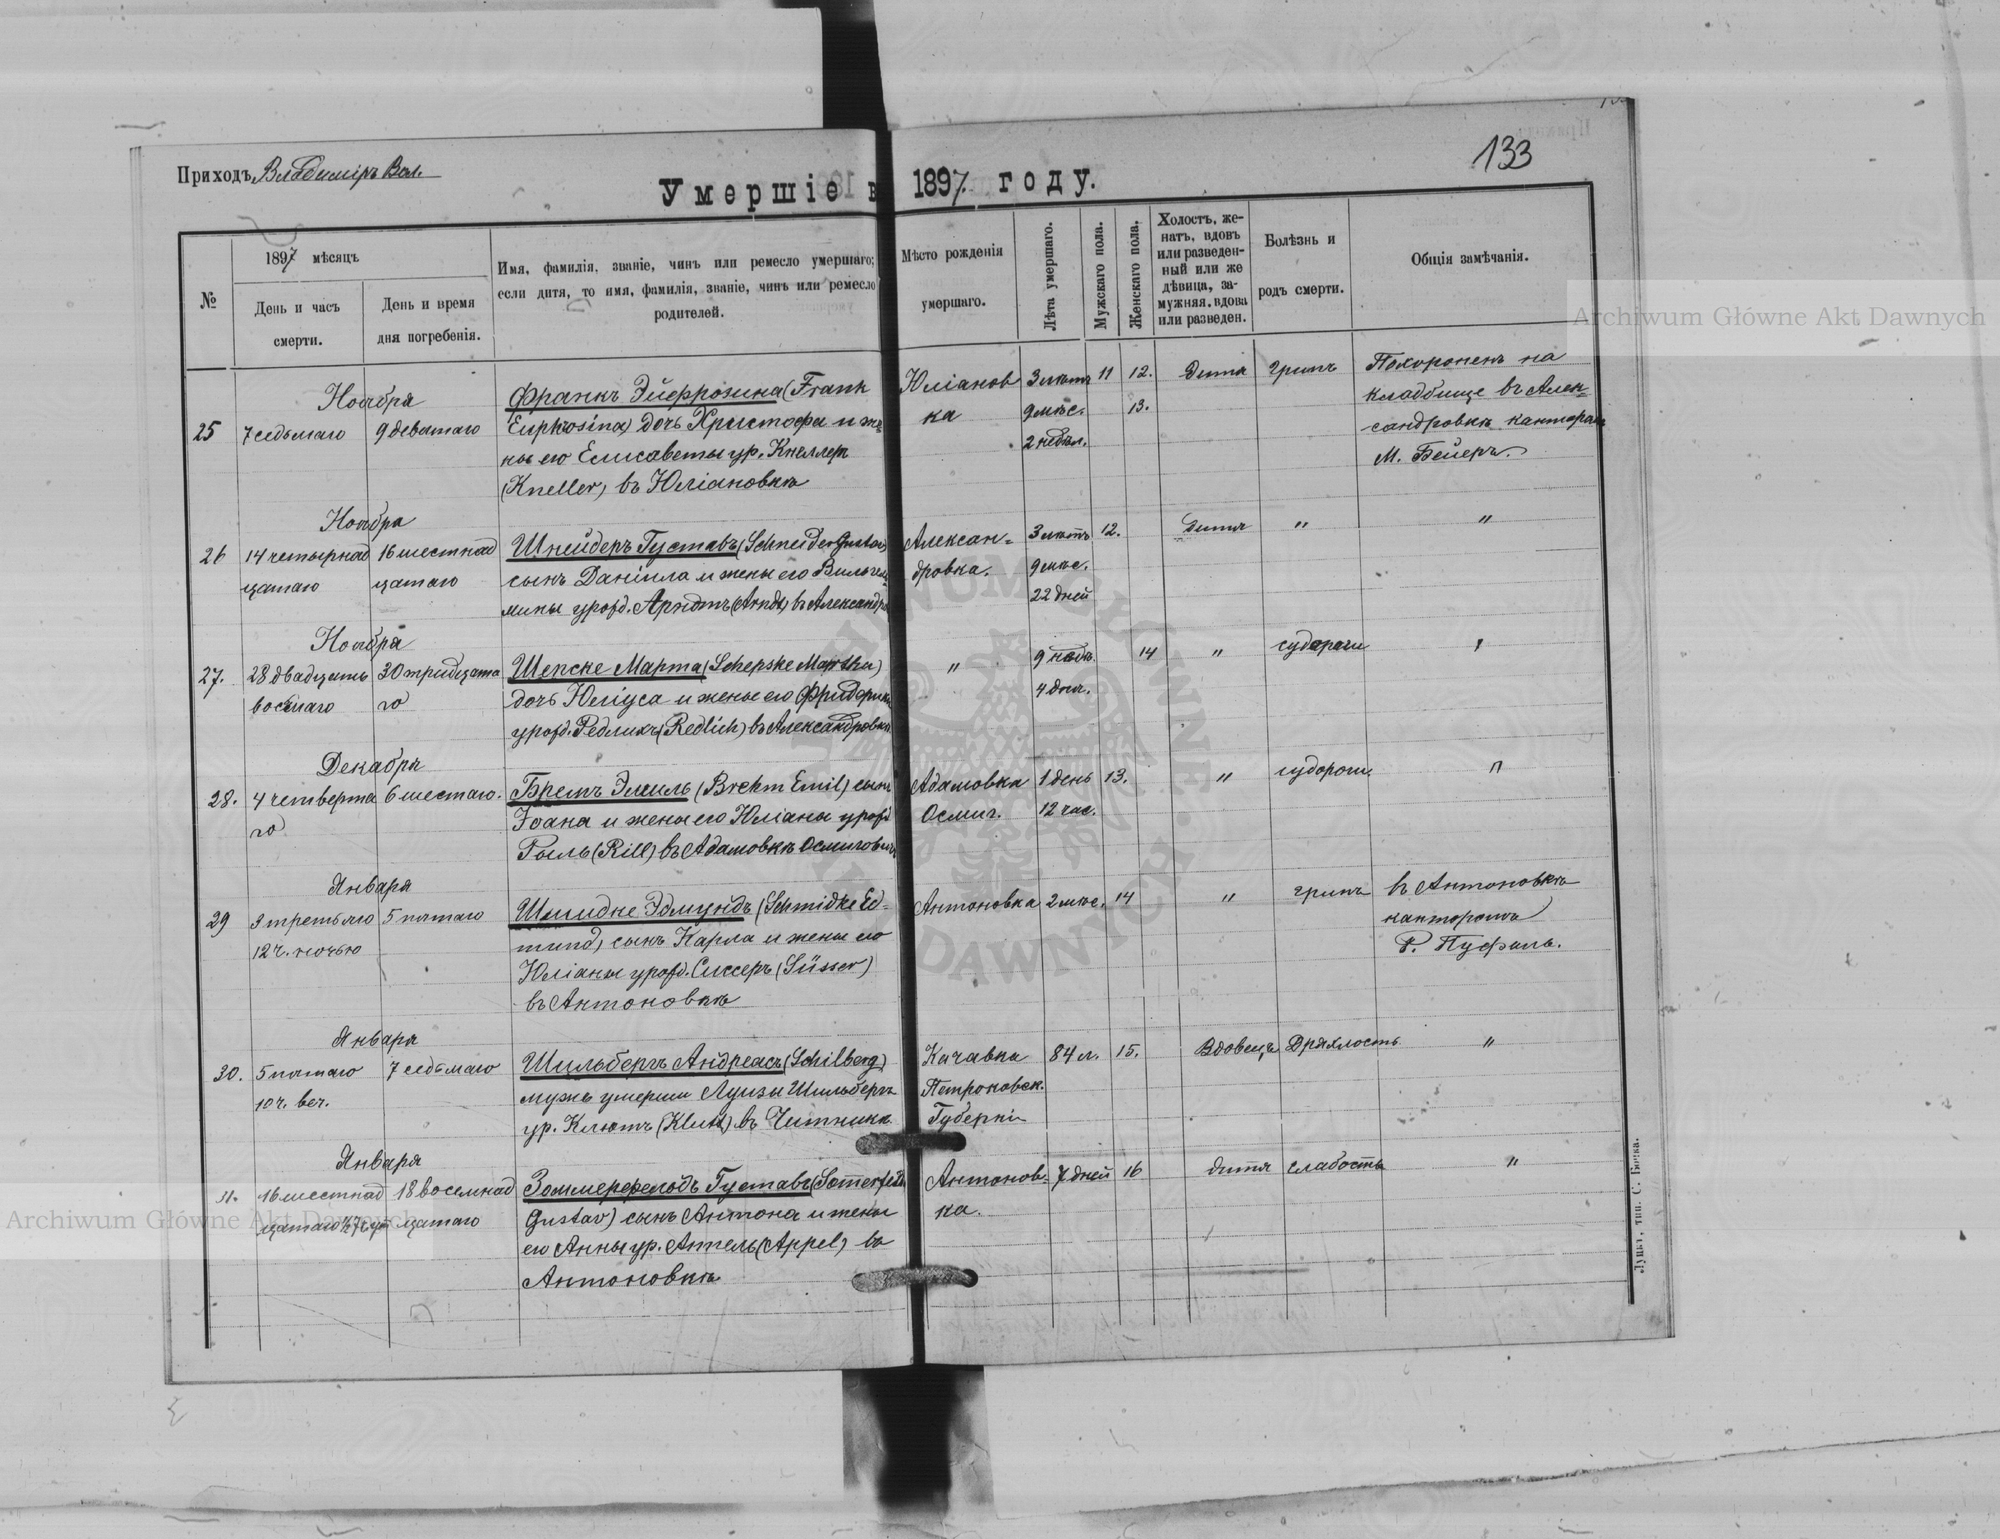 133
Приходъ Владимiръ Вол.
Умершіе в 1897 году.
№
1897 мѣсяцъ
День и часъ смерти.
День и время дня погребенія.
Имя, фамилія, званіе, чинъ или ремесло умершаго;
если дитя, то имя, фамилія, званіе, чинъ или ремесло
родителей.
Мѣсто рожденія
умершаго.
Лѣта умершаго.
Мужскаго пола.
Женскаго пола.
Холостъ, же-
натъ, вдовъ
или разведен-
ный или же
дѣвица, за-
мужняя, вдова
или разведен.
Болѣзнь и
родъ смерти.
Общія замѣчанія.
Archiwum Główne Akt Dawnych
Ноября
25 7 седьмаго 9 девятаго
Франкъ Эйфрозина (Frank
Euphrosina) дочь Христофа и же-
ны его Елисаветы ур. Кнеллеръ
(Kneller) въ Юліановкѣ
Юліанов
ка
3 лѣтъ 11 12.
9 мѣс. 13.
2 недѣл.
Дитя грипъ
Похороненъ на
кладбище въ Алек-
сандровкѣ канторомъ
М. Бейеръ.
Ноября
26 14 четырнад 16 шестнад
цатаго цатаго
Шнейдеръ Густавъ (Schneider Gustav)
сынъ Даніила и жены его Вильгель
мины урожд. Арндтъ (Arndt) въ Александр
Алексан-
дровка.
3 лѣтъ 12.
9 мѣс.
22 дней
Дитя " "
Ноября
27. 28 двадцать 30 тридцата
восьмаго го
Шепске Марта (Schepske Martha)
дочь Юліуса и жены его Фридерики
урожд. Редлихъ (Redlich) въ Александровкѣ
"
9 нед. 14
4 дня.
" судороги "
Декабря
28. 4 четверта 6 шестаго.
го
Бремъ Эмиль (Brehm Emil) сынъ
Іоана и жены его Юліаны урожд
Рыль (Rill) въ Адамовкѣ Осмиговичи
Адамовка
Осмиг.
1 день 13.
12 час.
" судороги. "
Января
29 3 третьяго 5 пятаго
12 ч. ночью
Шмидке Эдмундъ (Schmidke Ed-
mund) сынъ Карла и жены его
Юліаны урожд. Сиссеръ (Süsser)
въ Антоновкѣ
Антоновка 2 мѣс. 14
" грипъ
въ Антоновкѣ
канторомъ
Р. Пуфаль.
Января
30. 5 пятаго 7 седьмаго
10 ч. веч.
Шильбергъ Андреасъ (Schilberg)
мужъ умерши Луизы Шильбергъ
ур. Клютъ (Klutt) въ Читникѣ
Качавка
Петроковск.
Губерніи
84 л. 15.
Вдовецъ Дряхлость "
Января
31. 16 шестнад 18 восемнад
цатаго цатаго
Зоммерфельдъ Густавъ (Somerfeld
Gustav) сынъ Антона и жены
его Анны ур. Аппель (Appel) въ
Антоновкѣ
Антонов-
ка.
7 дней 16
дитя слабость "
Archiwum Główne Akt Dawnych
Луцкъ, тип. С. Бѣска.
ARCHIWUM GŁÓWNE AKT DAWNYCH